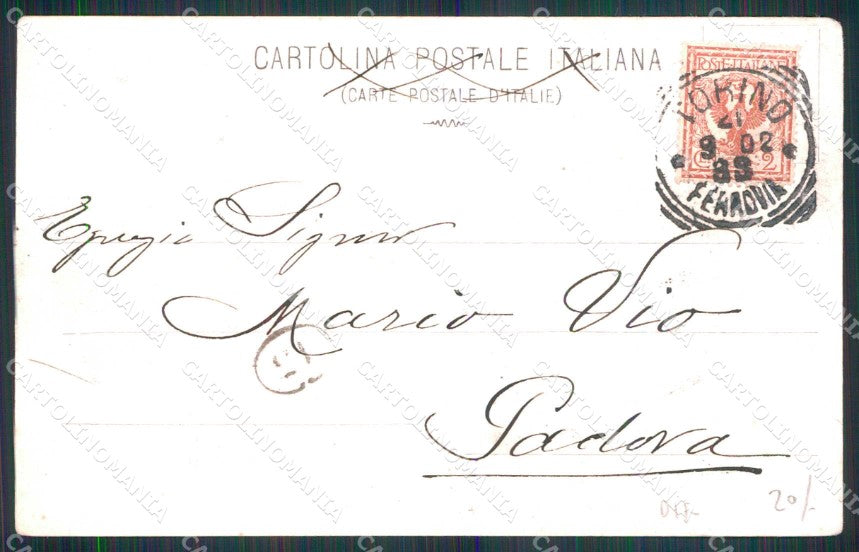 CARTOLINA POSTALE ITALIANA
(CARTE POSTALE D'ITALIE)
POSTE ITALIANE
C. 2
TORINO
21
9 02
8S
FERROVIA
Egregio Signor
Mario Vio
Padova
20/-
CARTOLINOMANIA